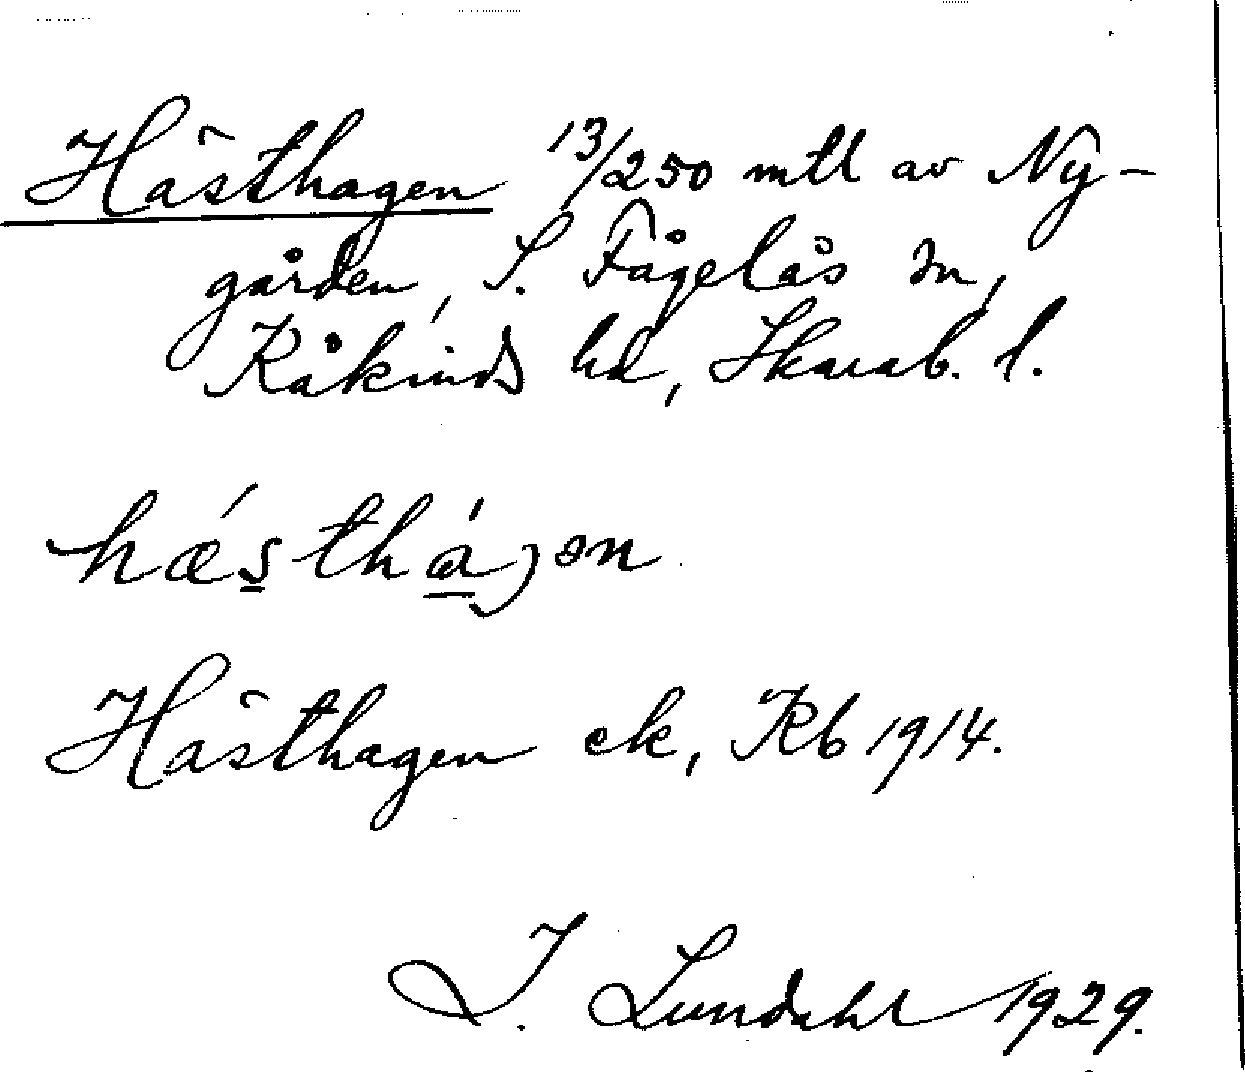 Hästhagen 13/250 mtl av Ny-
gården, S. Fågelås sn,
Kåkinds hd, Skarab. l.
hǽsthájən
Hästhagen ek, Kb 1914.
I. Lundahl 1929.